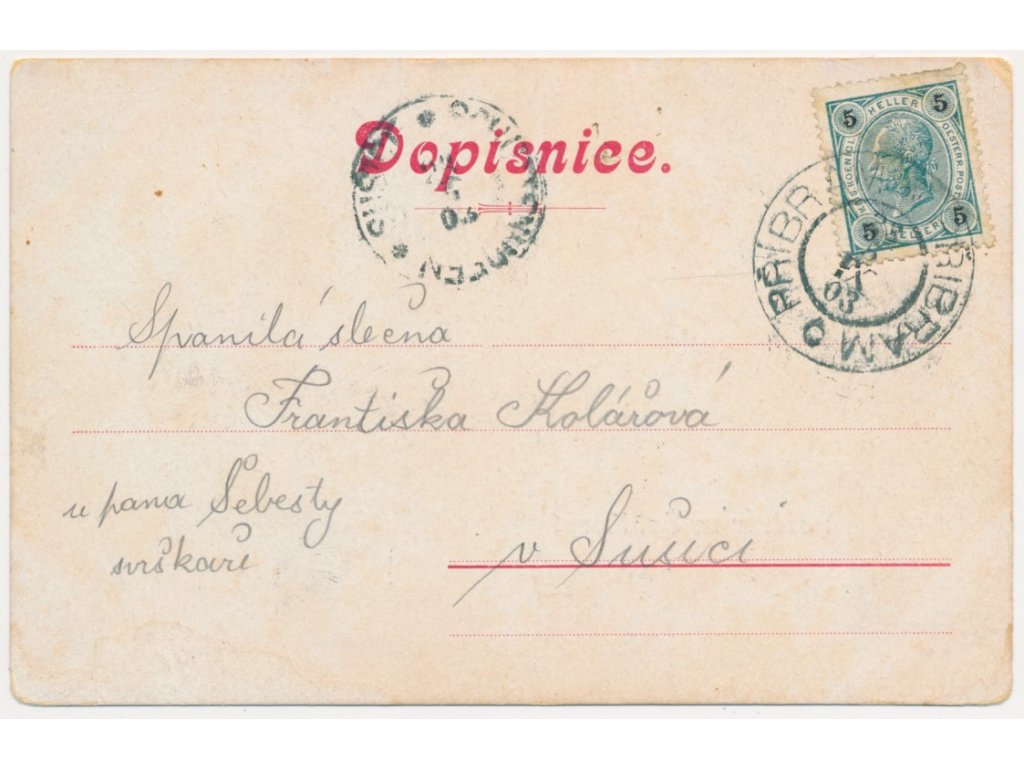 Dopisnice.
5 HELLER 5
KAIS. KOENIGL. OESTERR. POST
5 HELLER 5
PŘIBRAM PŘIBRAM
03
SUŠICE SCHÜTTENHOFEN
03
Spanilá slečna
Františka Kolářová
u pana Šebesty
svrškaři
v Sušici